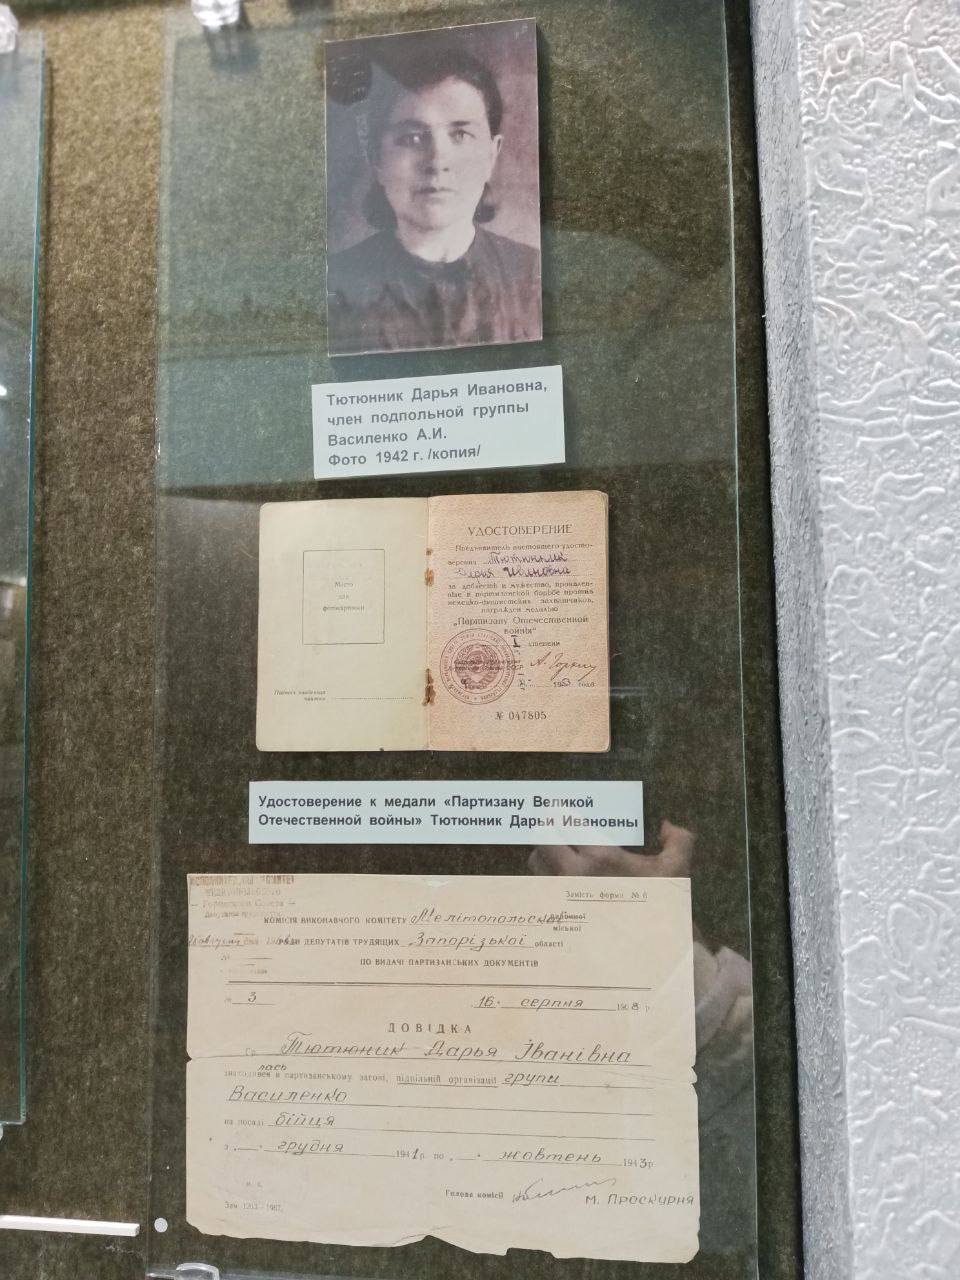 Тютюнник Дарья Ивановна,
член подпольной группы
Василенко А.И.
Фото 1942 г. /копия/
Место
для
фотокарточки
Подпись владельца
УДОСТОВЕРЕНИЕ
Предъявитель настоящего удосто-
верения Тютюнник
Дарья Ивановна
за доблесть и мужество, проявлен-
ные в партизанской борьбе против
немецко-фашистских захватчиков,
награжден медалью
„Партизану Отечественной
войны“
I степени
195 года
№ 047805
Удостоверение к медали «Партизану Великой
Отечественной войны» Тютюнник Дарьи Ивановны
Замість форми № 6
Городского Совета
КОМІСІЯ ВИКОНАВЧОГО КОМІТЕТУ Мелітопольської районної
міської
РАДИ ДЕПУТАТІВ ТРУДЯЩИХ Запорізької області
ПО ВИДАЧІ ПАРТИЗАНСЬКИХ ДОКУМЕНТІВ
№ 3
16. серпня 1968 р.
ДОВІДКА
Гр. Тютюник Дарья Іванівна
лась
знаходився в партизанському загоні, підпільній організації групи
Василенко
на посаді бійця
з „ “ грудня 1941 р. по „ “ жовтень 1943 р.
Голова комісії М. Проскурня
м. п.
Зам. 1203—1967.